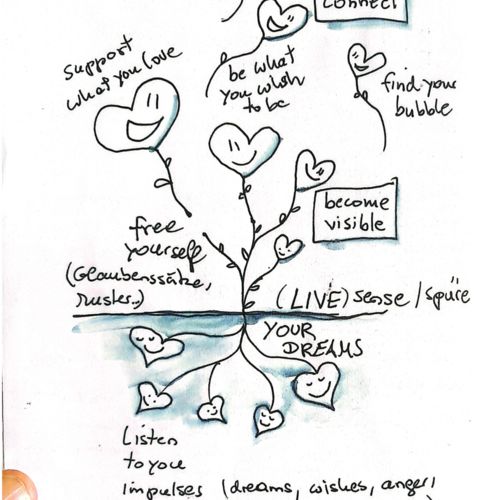 connect
support
what you love
be what
you wish
to be
find your
bubble
become
visible
free
yourself
(Glaubenssätze,
Muster..)
(LIVE) sense / spüre
YOUR
DREAMS
Listen
to your
impulses (dreams, wishes, anger,